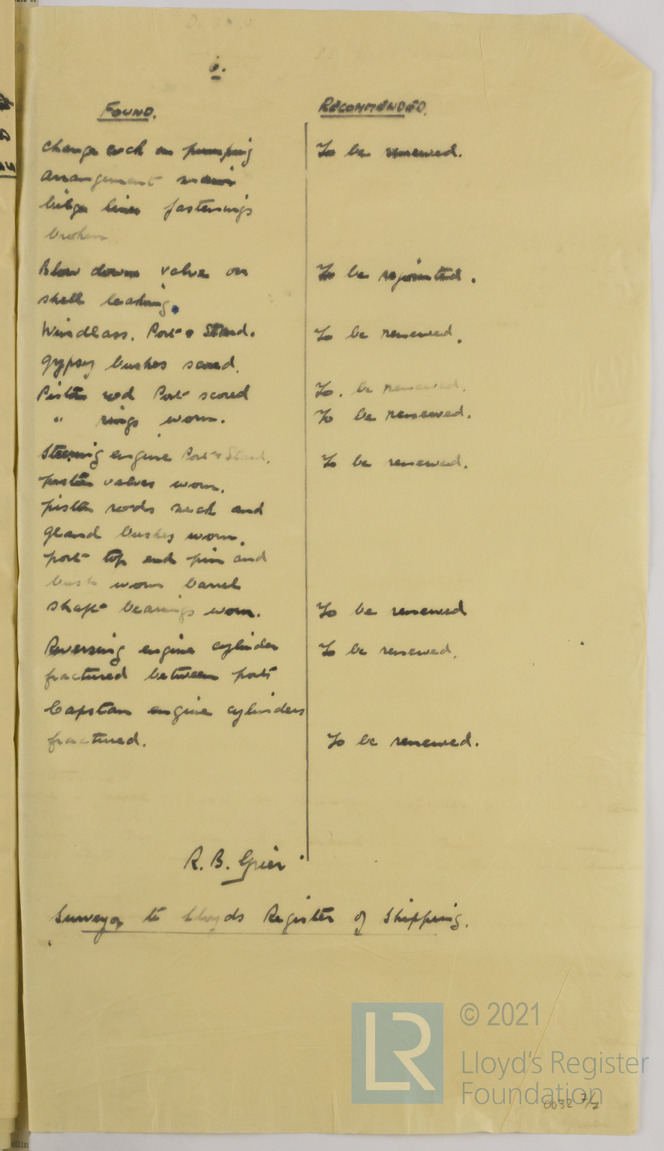 6.
FOUND. RECOMMENDED.
Change cock on pumping To be renewed.
arrangement main
bilge line fastenings
broken
Blow down valve on To be rejointed.
shell leaking.
Windlass. Port & Starbd. To be renewed.
gypsy bushes scored.
Piston rod Port scored To be renewed.
" rings worn. To be renewed.
Steering engine Port & Starbd. To be renewed.
piston valves worn.
piston rods neck and
gland bushes worn.
port top end pin and
bush worn barrel
shaft bearings worn. To be renewed
Reversing engine cylinder To be renewed.
fractured between ports
Capstan engine cylinders
fractured. To be renewed.
R. B. Grier
Surveyor to Lloyds Register of Shipping.
© 2021
LR
Lloyd's Register
Foundation
0032 7/7